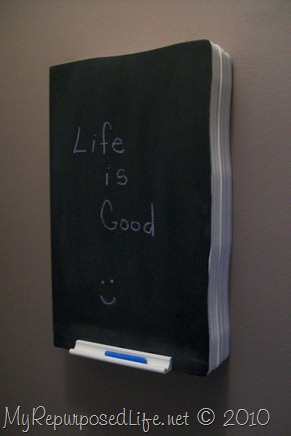 Life
is
Good
:)
MyRepurposedLife.net © 2010